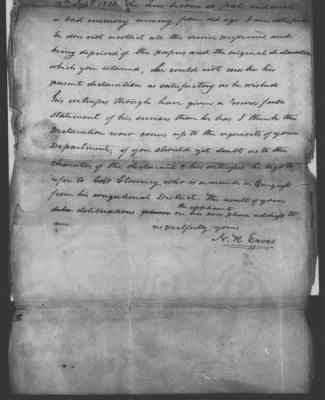 15th Sept. 1832. He has become so frail and such
a bad memory arising from old age I am satisfied
he does not recollect all the service performed and
being deprived of the papers and the original declaration
which you returned, he could not make his
present declaration as satisfactory as he wished
his witnesses though have given a more full
statement of his services than he has I think the
Declaration now comes up to the requisits of your
Department, if you should yet doubt as to the
Character of the declarant & his witnesses he begs to
refer to Coll Clowney who is a member in Congress
from his congressional District. The result of your
deliberations please on the applicants case please address to
me
respectfully yours
N. R. Eaves